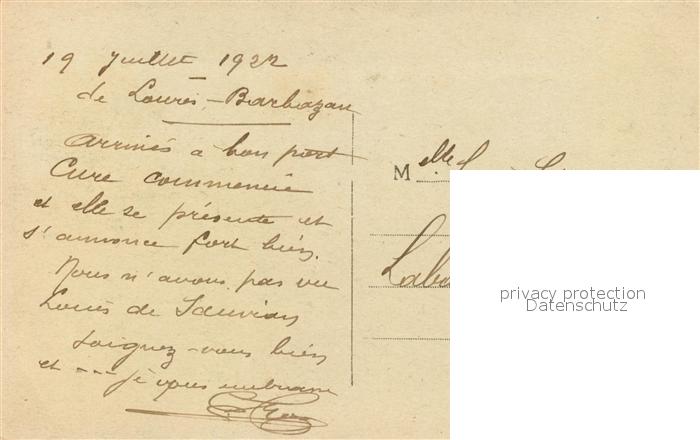 19 Juillet 1922
de Loures-Barbazan
Arrivés à bon port
Cure commencée
et elle se présente et
s'annonce fort bien.
Nous n'avons pas vu
Louis de
Soignez-vous bien
et --- je vous embrasse
M elle
privacy protection
Datenschutz